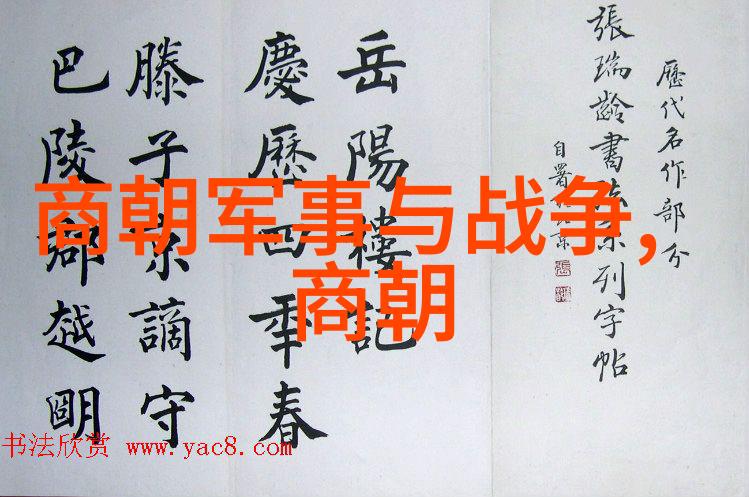 歷代名作部分
張瑞齡書法系列字帖
岳陽樓記
慶歷四年春
滕子京謫守
巴陵郡越明
商朝军事与战争,
商朝
书法欣赏 www.yac8.com